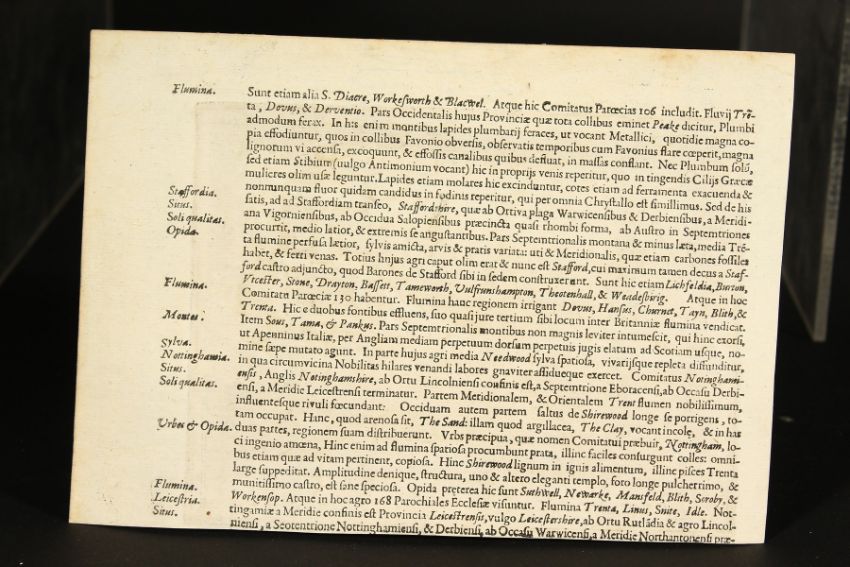 Flumina.
Sunt etiam alia S. Diacre, Workesworth & Blacwel. Atque hic Comitatus Parœcias 106 includit. Fluvij Trē-
ta, Dovus, & Derventio. Pars Occidentalis hujus Provinciæ quæ tota collibus eminet Peake dicitur, Plumbi
admodum ferax. In his enim montibus lapides plumbarij feraces, ut vocant Metallici, quotidie magna co-
pia effodiuntur, quos in collibus Favonio obversis, observatis temporibus cum Favonius flare cœperit, magna
lignorum vi accensa, excoquunt, & effossis canalibus quibus defluat, in massas conflant. Nec Plumbum solū,
sed etiam Stibium (vulgo Antimonium vocant) hic in proprijs venis reperitur, quo in tingendis Cilijs Græcæ
mulieres olim usæ leguntur. Lapides etiam molares hic excinduntur, cotes etiam ad ferramenta exacuenda &
nonnunquam fluor quidam candidus in fodinis reperitur, qui per omnia Chrystallo est simillimus. Sed de his
Staffordia.
satis, ad ad Staffordiam transeo, Staffordshire, quæ ab Ortiva plaga Warwicensibus & Derbiensibus, a Meridi-
Situs.
ana Vigorniensibus, ab Occidua Salopiensibus præcincta quasi rhombi forma, ab Austro in Septemtriones
Soli qualitas.
procurrit, medio latior, & extremis se angustantibus. Pars Septemtrionalis montana & minus læta, media Trē-
Opida.
ta flumine perfusa lætior, sylvis amicta, arvis & pratis variata: uti & Meridionalis, quæ etiam carbones fossiles
habet, & ferri venas. Totius hujus agri caput olim erat & nunc est Stafford, cui maximum tamen decus a Staf-
ford castro adjuncto, quod Barones de Stafford sibi in sedem construxerant. Sunt hic etiam Lichfeldia, Burton,
Vtcester, Stone, Drayton, Bassett, Tameworth, Vulfrunshampton, Theotenhall, & Weadesbirig. Atque in hoc
Flumina.
Comitatu Parœciæ 130 habentur. Flumina hanc regionem irrigant Dovus, Hansus, Churnet, Tayn, Blith, &
Trenta. Hic e duobus fontibus effluens, suo quasi jure tertium sibi locum inter Britanniæ flumina vendicat.
Montes.
Item Sous, Tama, & Pankus. Pars Septemtrionalis montibus non magnis leviter intumescit, qui hinc exorsi,
ut Apenninus Italiæ, per Angliam mediam perpetuum dorsum perpetuis jugis elatum ad Scotiam usque, no-
Sylva.
mine sæpe mutato agunt. In parte hujus agri media Needwood sylva spatiosa, vivarijsque repleta diffunditur,
Nottinghamia.
in qua circumvicina Nobilitas hilares venandi labores gnaviter assidueque exercet. Comitatus Notinghami-
Situs.
ensis, Anglis Notinghamshire, ab Ortu Lincolniensi confinis est, a Septemtrione Eboracensi, ab Occasu Derbi-
Soli qualitas.
ensi, a Meridie Leicestrensi terminatur. Partem Meridionalem, & Orientalem Trent flumen nobilissimum,
influentesque rivuli fœcundant: Occiduam autem partem saltus de Shirewood longe se porrigens, to-
tam occupat. Hanc, quod arenosa sit, The Sand: illam quod argillacea, The Clay, vocant incolę, & in has
Urbes & Opida.
duas partes, regionem suam distribuerunt. Vrbs præcipua, quæ nomen Comitatui præbuit, Nottingham, lo-
ci ingenio amœna, Hinc enim ad flumina spatiosa procumbunt prata, illinc faciles consurgunt colles: omni-
bus etiam quæ ad vitam pertinent, copiosa. Hinc Shirewood lignum in ignis alimentum, illinc pisces Trenta
large suppeditat. Amplitudine denique, structura, uno & altero eleganti templo, foro longe pulcherrimo, &
munitissimo castro, est sane speciosa. Opida præterea hic sunt Suthwell, Newarke, Mansfeld, Blith, Scroby, &
Flumina.
Workensop. Atque in hoc agro 168 Parochiales Ecclesiæ visuntur. Flumina Trenta, Linus, Snite, Idle. Not-
Leicestria.
tingamiæ a Meridie confinis est Provincia Leicestrensis, vulgo Leicestershire, ab Ortu Rutlādiæ & agro Lincol-
Situs.
niensi, a Septentrione Nottinghamiensi, & Derbiensi, ab Occasu Warwicensi, a Meridie Northantonensi præ-